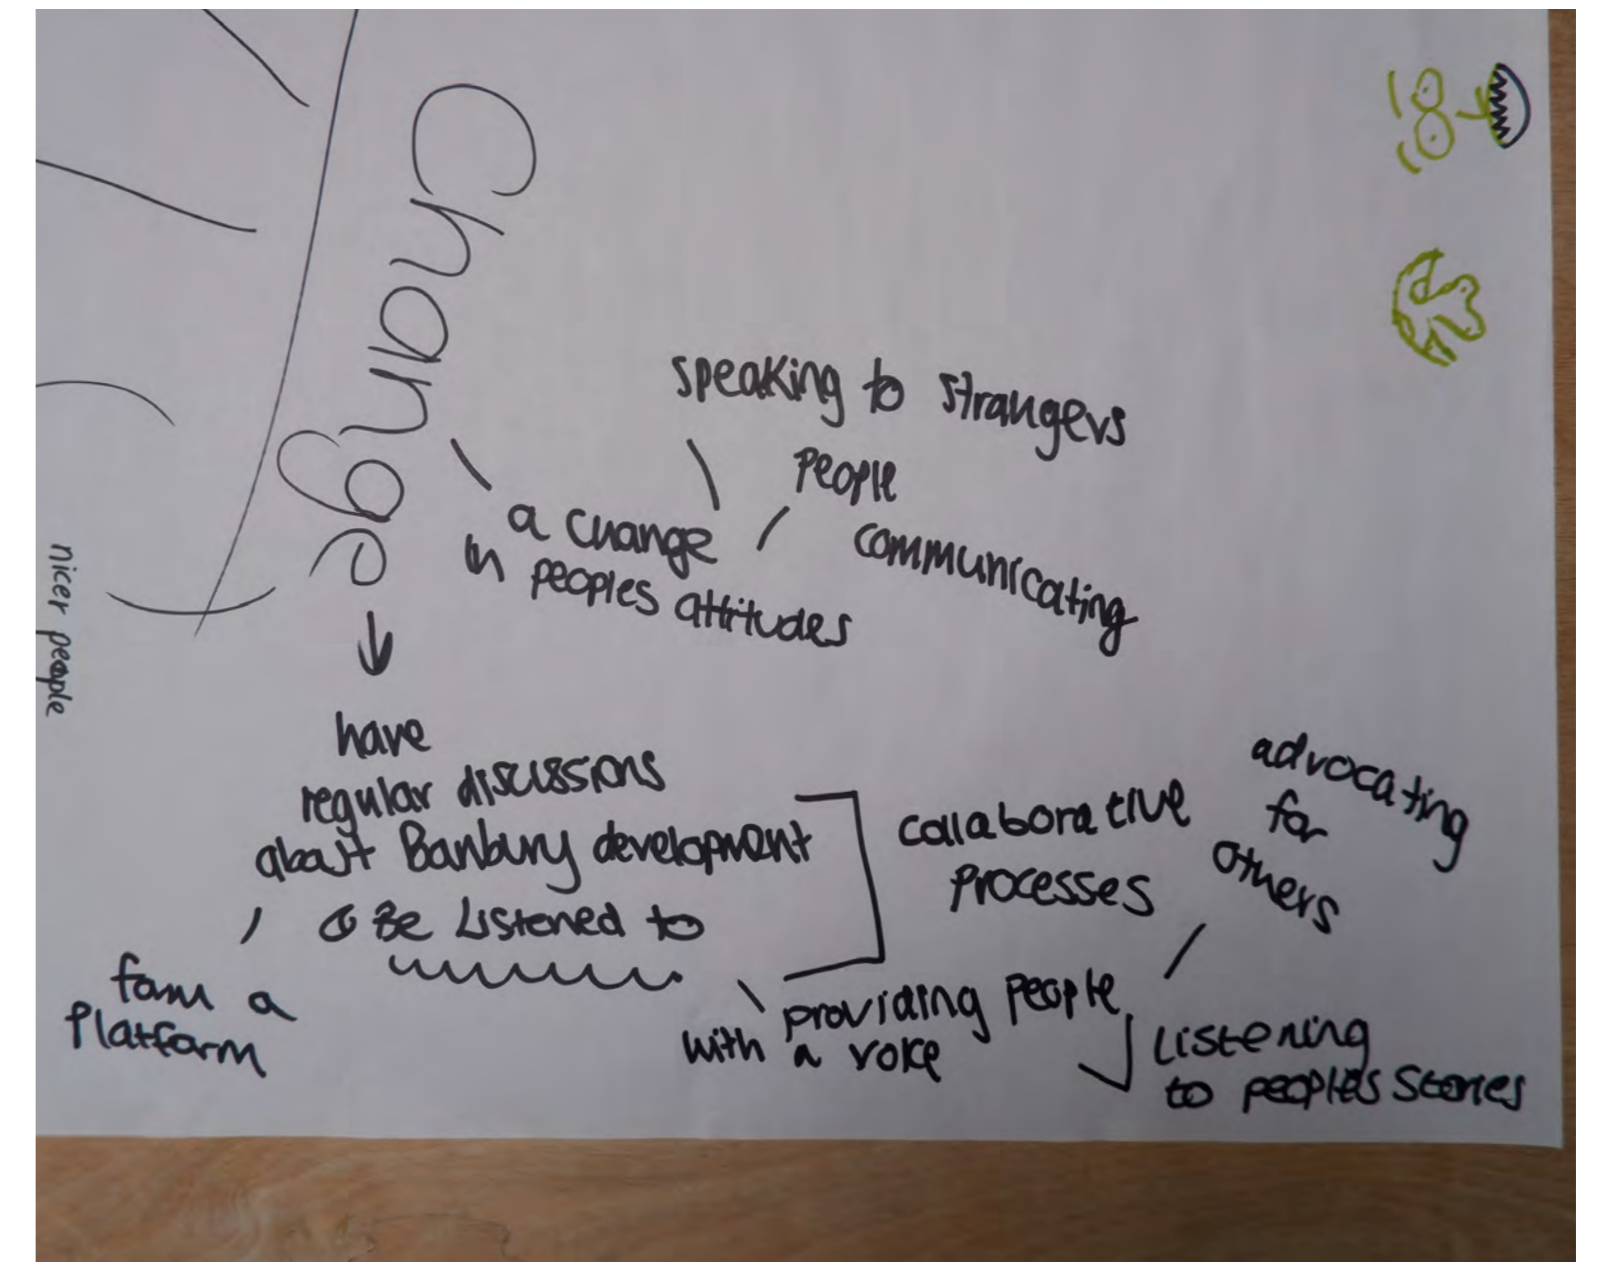 Change
speaking to strangers
people
communicating
a change
in peoples attitudes
nicer people
have
regular discussions
about Banbury development
& Be Listened to
form a
Platform
collaborative
processes
advocating
for
others
providing people
with a voice
Listening
to people's stories